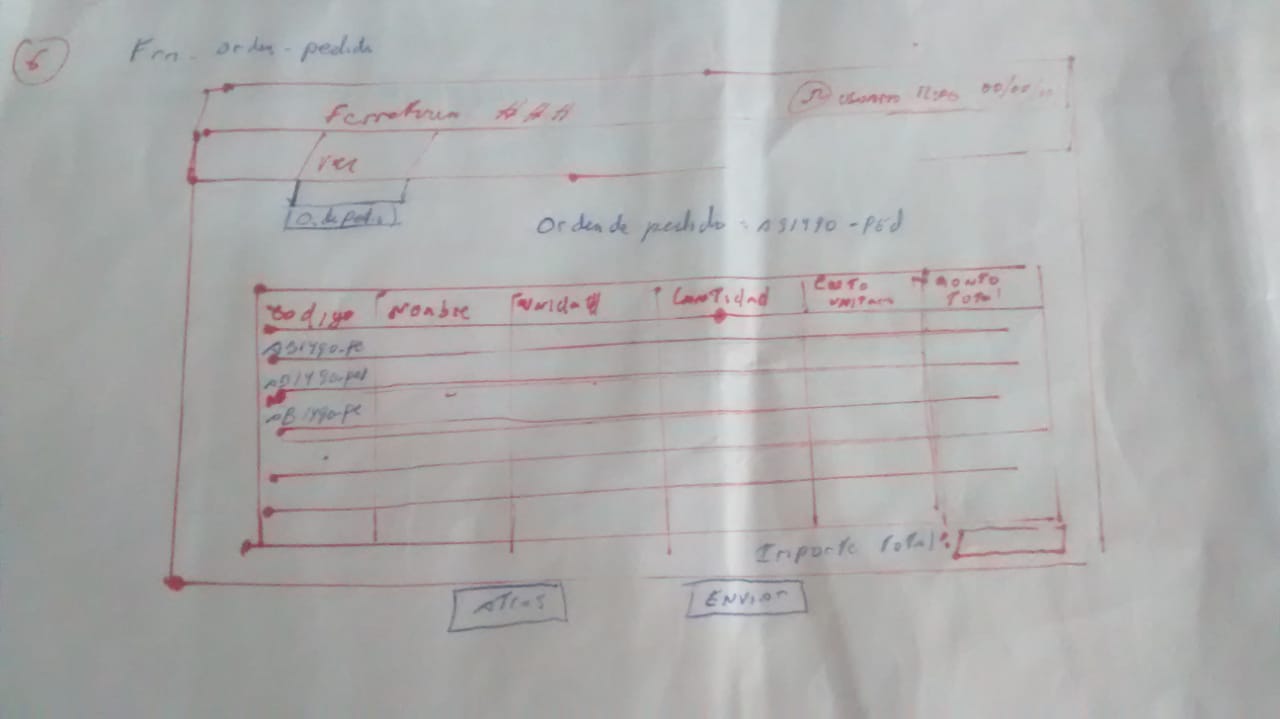 6 Frm. orden - pedido
Ferreteria AAA 00/00/
Ver
O. de pedi
Orden de pedido = AB1490 - PEd
Codigo Nombre Unidad Cantidad Costo unitario Monto Total
AB1490-pe
AB1490-ped
AB1490-pe
Importe Total:
Atras Enviar